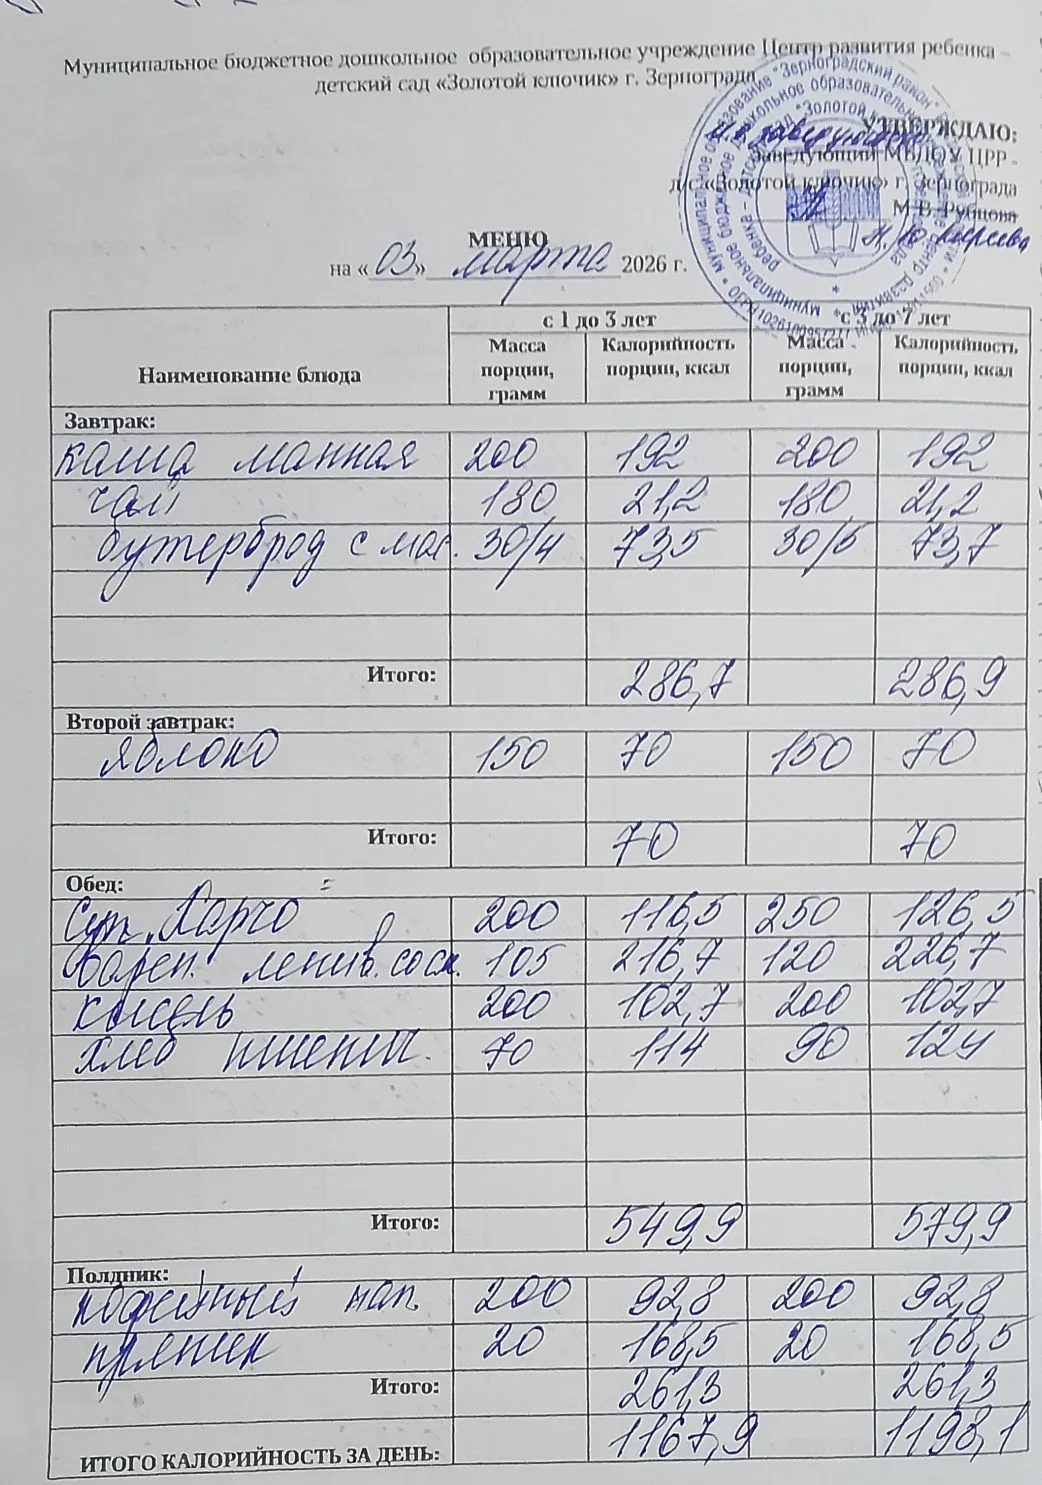 Муниципальное бюджетное дошкольное образовательное учреждение Центр развития ребенка –
детский сад «Золотой ключик» г. Зернограда
УТВЕРЖДАЮ:
И.о. заведующего
Заведующий МБДОУ ЦРР -
д/с «Золотой ключик» г. Зернограда
М.В. Рубцова
МЕНЮ
на « 03 » марта 2026 г.
Наименование блюда с 1 до 3 лет с 3 до 7 лет
Масса порции, грамм Калорийность порции, ккал Масса порции, грамм Калорийность порции, ккал
Завтрак:
каша манная 200 192 200 192
чай 180 21,2 180 21,2
бутерброд с мас. 30/4 73,5 30/5 73,7
Итого: 286,7 286,9
Второй завтрак:
яблоко 150 70 150 70
Итого: 70 70
Обед:
Суп Харчо 200 116,5 250 126,5
Варен. ленив. сосис. 105 216,7 120 226,7
кисель 200 102,7 200 102,7
хлеб пшенич. 70 114 90 124
Итого: 549,9 579,9
Полдник:
кофейный нап. 200 92,8 200 92,8
пряник 20 168,5 20 168,5
Итого: 261,3 261,3
ИТОГО КАЛОРИЙНОСТЬ ЗА ДЕНЬ: 1167,9 1198,1